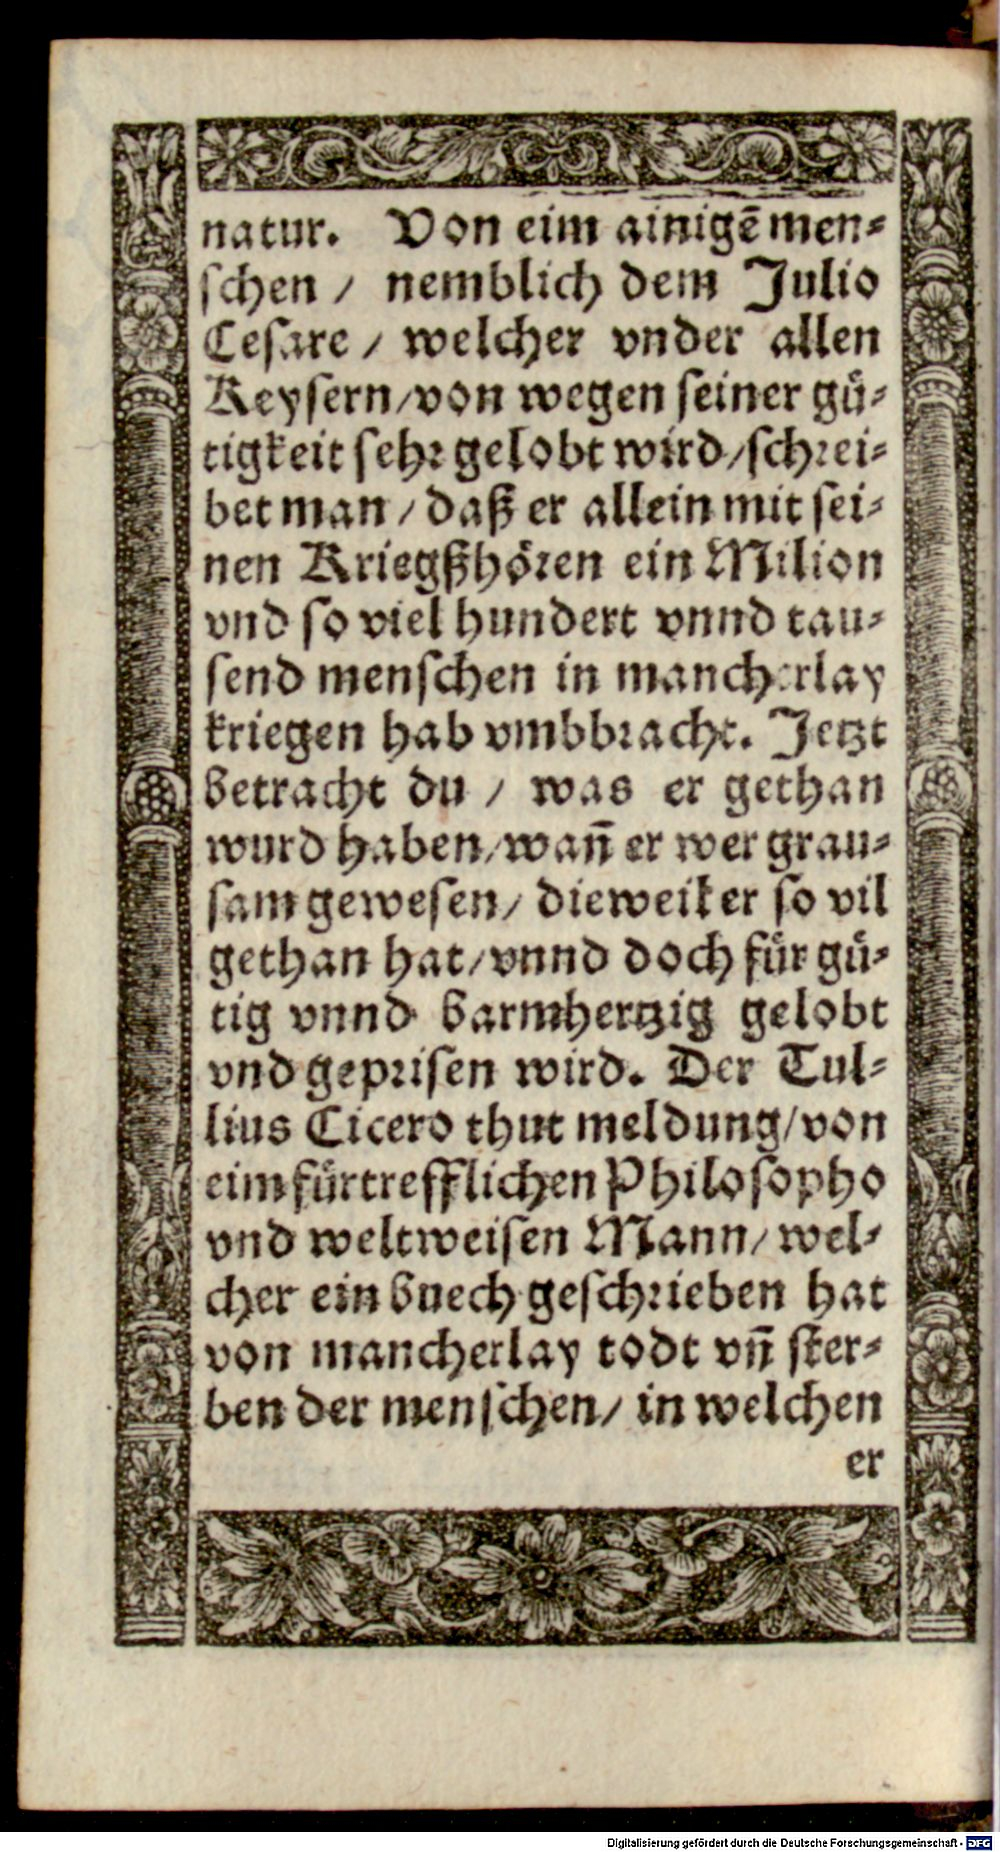 natur. Von eim ainigē men⸗
schen / nemblich dem Julio
Cesare / welcher vnder allen
Keysern / von wegen seiner guͤ⸗
tigkeit sehr gelobt wird / schrei⸗
bet man / daß er allein mit sei⸗
nen Kriegßhoͤren ein Milion
vnd so viel hundert vnnd tau⸗
send menschen in mancherlay
kriegen hab vmbbracht. Jetzt
betracht du / was er gethan
wurd haben / wañ er wer grau⸗
sam gewesen / dieweil er so vil
gethan hat / vnnd doch fuͤr guͤ⸗
tig vnnd barmhertzig gelobt
vnd geprisen wird. Der Tul⸗
lius Cicero thut meldung / von
eim fuͤrtrefflichen Philosopho
vnd weltweisen Mann / wel⸗
cher ein buech geschrieben hat
von mancherlay todt vñ ster⸗
ben der menschen / in welchen
er
Digitalisierung gefördert durch die Deutsche Forschungsgemeinschaft - DFG